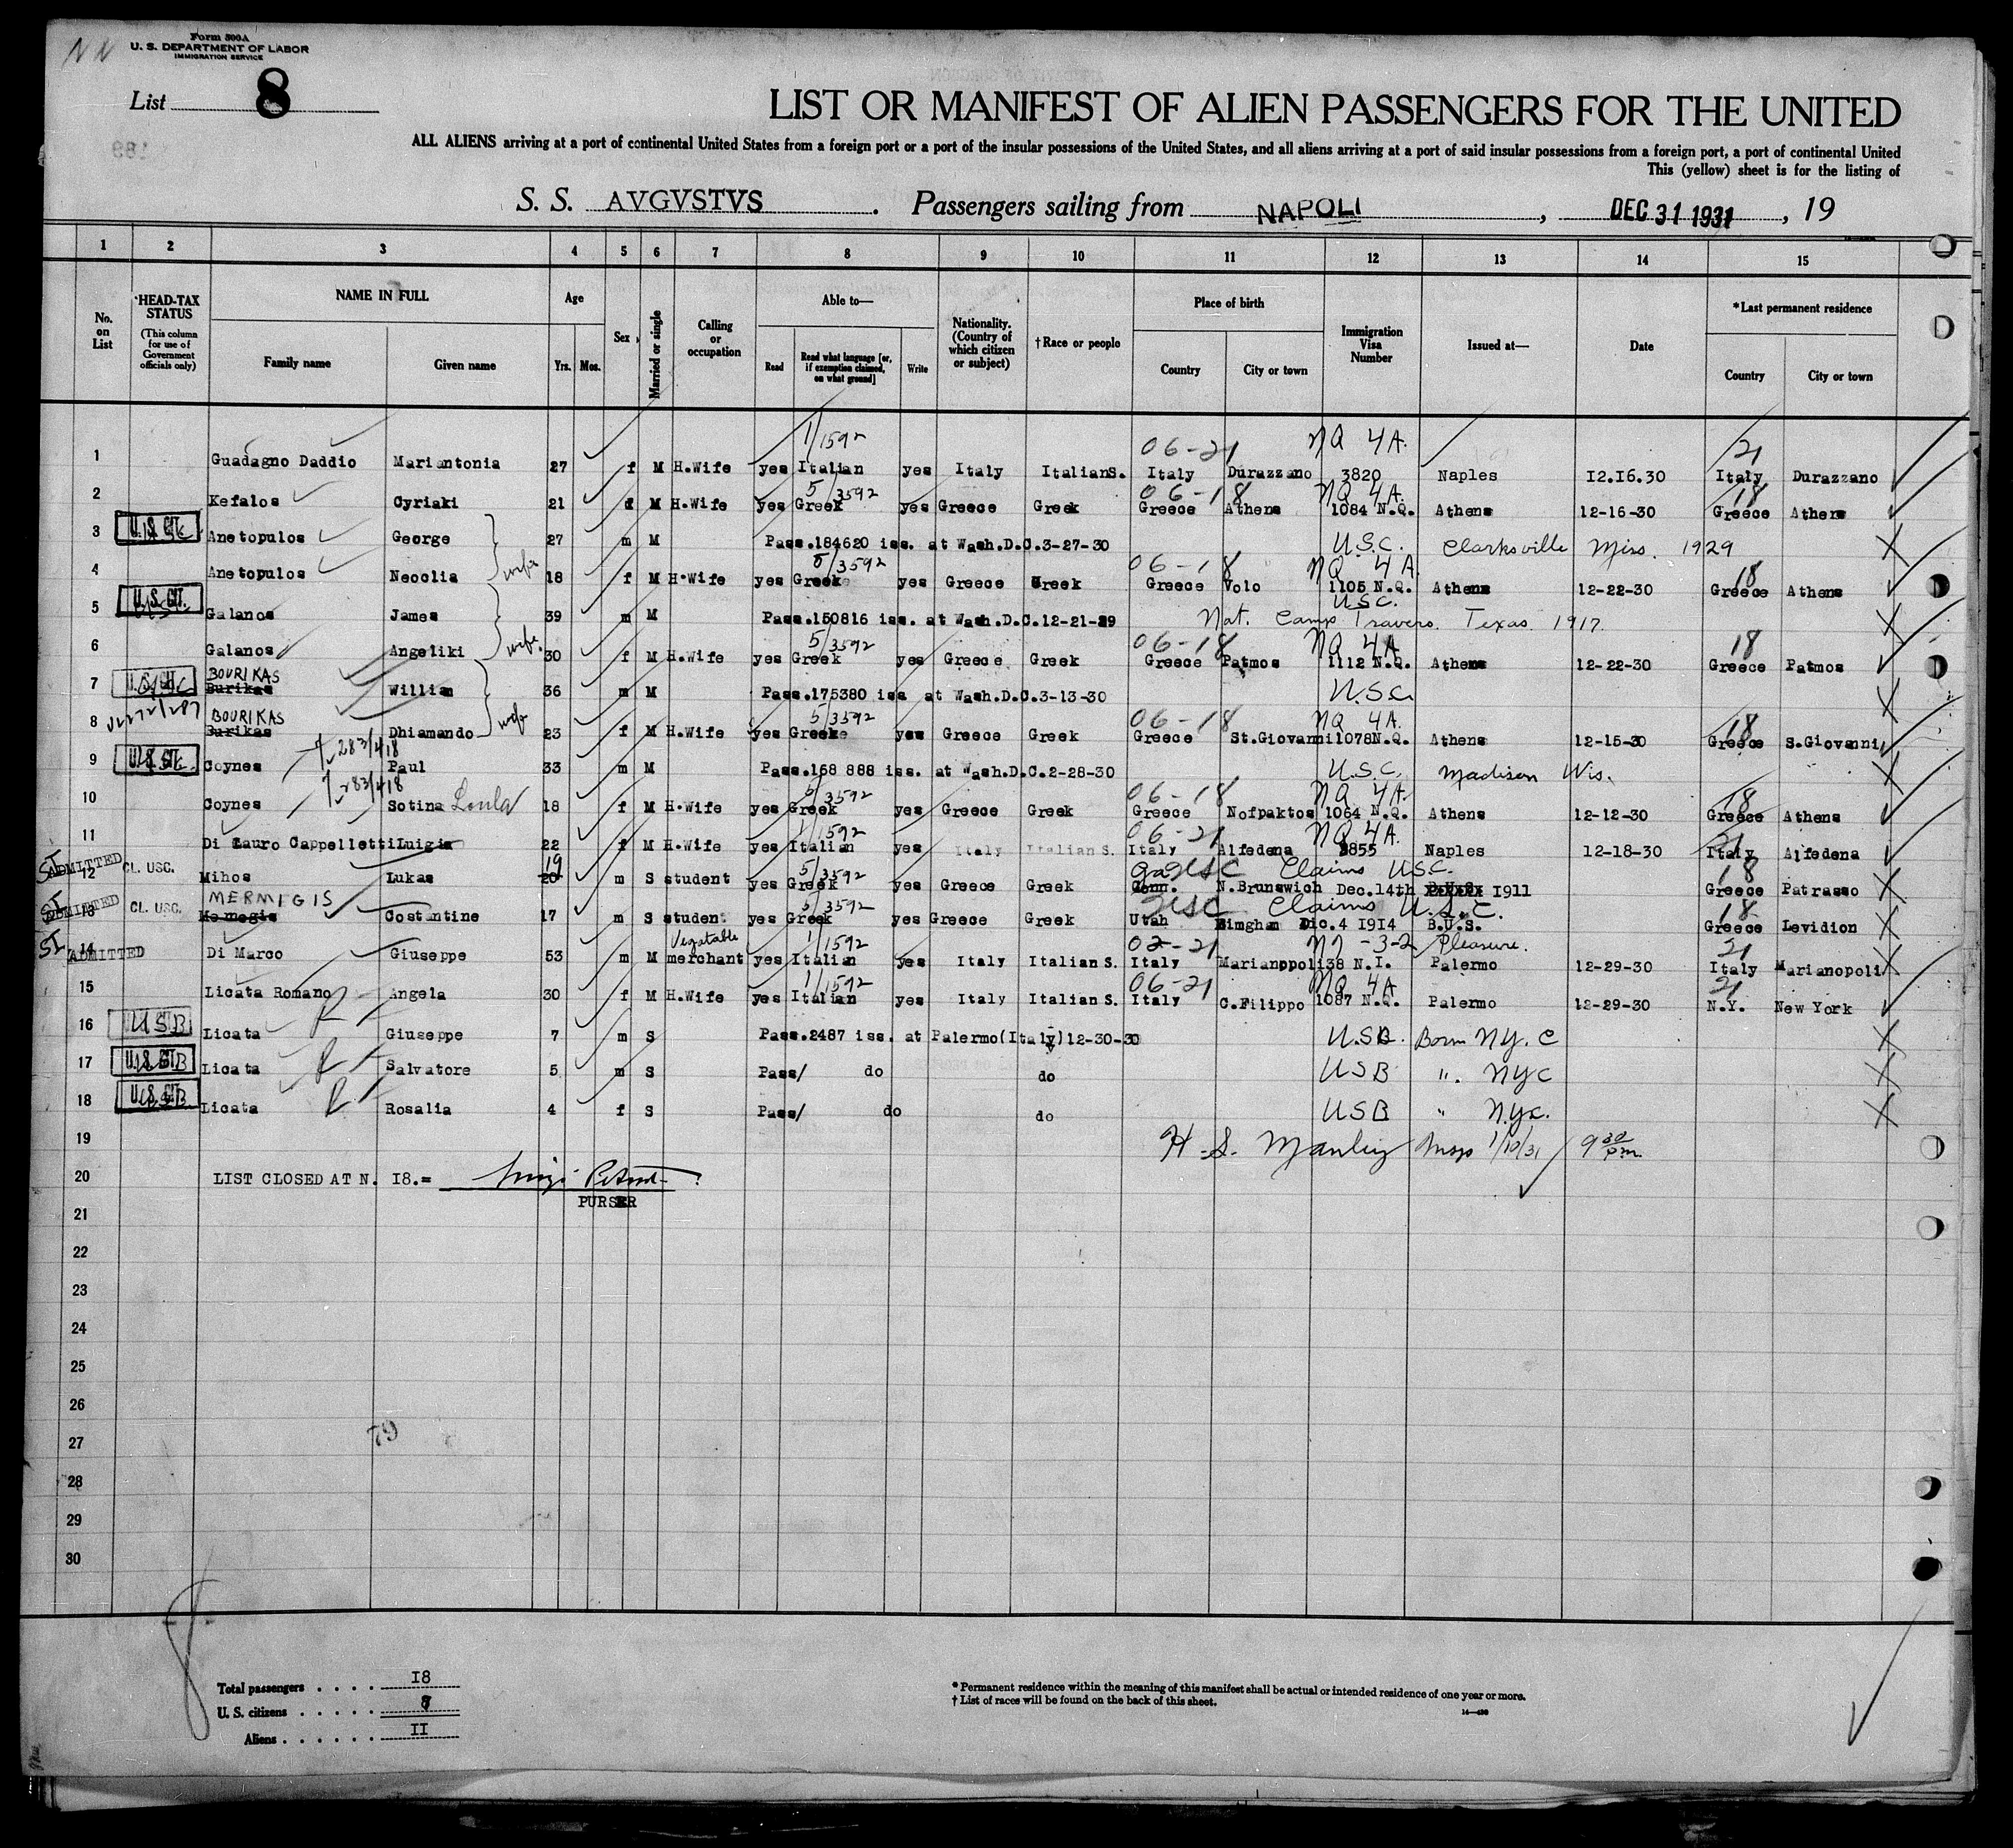 Form 500A
U. S. DEPARTMENT OF LABOR
IMMIGRATION SERVICE
List 8
LIST OR MANIFEST OF ALIEN PASSENGERS FOR THE UNITED
ALL ALIENS arriving at a port of continental United States from a foreign port or a port of the insular possessions of the United States, and all aliens arriving at a port of said insular possessions from a foreign port, a port of continental United
This (yellow) sheet is for the listing of
S. S. AVGVSTVS. Passengers sailing from NAPOLI, DEC 31 1931, 19
1 2 3 4 5 6 7 8 9 10 11 12 13 14 15
No. on List
HEAD-TAX STATUS (This column for use of Government officials only)
NAME IN FULL
Family name Given name
Age
Yrs. Mos.
Sex
Married or single
Calling or occupation
Able to—
Read Read what language [or, if exemption claimed, on what ground] Write
Nationality. (Country of which citizen or subject)
†Race or people
Place of birth
Country City or town
Immigration Visa Number
Issued at—
Date
*Last permanent residence
Country City or town
1/1592 06-21 NQ 4A. 21
1 Guadagno Daddio Mariantonia 27 f M H.Wife yes Italian yes Italy Italian S. Italy Durazzano 3820 Naples 12.16.30 Italy Durazzano
5/3592 06-18 NQ 4A. 18
2 Kefalos Cyriaki 21 f M H.Wife yes Greek yes Greece Greek Greece Athens 1084 N.Q. Athens 12-16-30 Greece Athens
3 U.S. CIT. Anetopulos George 27 m M Pass.184620 iss. at Wash.D.C.3-27-30 U.S.C. Clarksville Miss. 1929
wife 5/3592 06-18 NQ 4A 18
4 Anetopulos Neoclia 18 f M H.Wife yes Greek yes Greece Greek Greece Volo 1105 N.Q. Athens 12-22-30 Greece Athens
U.S.C.
5 U.S. CIT. Galanos James 39 m M Pass.150816 iss. at Wash.D.C.12-21-29 Nat. Camp Travers. Texas 1917
wife. 5/3592 06-18 NQ 4A 18
6 Galanos Angeliki 30 f M H.Wife yes Greek yes Greece Greek Greece Patmos 1112 N.Q. Athens 12-22-30 Greece Patmos
BOURIKAS
7 Burikas William 36 m M Pass.175380 iss at Wash.D.C.3-13-30 U.S.C.
BOURIKAS wife 5/3592 06-18 NQ 4A. 18
8 Burikas Dhiamando 23 f M H.Wife yes Greek yes Greece Greek Greece St.Giovanni 1078N.Q. Athens 12-15-30 Greece S.Giovanni
283/418
9 U.S. CIT. Coynes Paul 33 m M Pass.168 888 iss. at Wash.D.C.2-28-30 U.S.C. Madison Wis.
283/418 5/3592 06-18 NQ 4A. 18
10 Coynes Sotina Loula 18 f M H.Wife yes Greek yes Greece Greek Greece Nofpaktos 1064 N.Q. Athens 12-12-30 Greece Athens
1/1592 06-21 NQ 4A. 21
11 Di Lauro Cappelletti Luigia 22 f M H.Wife yes Italian yes Italy Italian S. Italy Alfedena 3855 Naples 12-18-30 Italy Alfedena
SI ADMITTED CL. USC. 19 5/3592 USC Claims USC. 18
12 Mihos Lukas 20 m S student yes Greek yes Greece Greek Conn. N.Brunswich Dec.14th 1911 Greece Patrasso
SI ADMITTED CL. USC. MERMIGIS 5/3592 USC Claims U.S.C. 18
13 Mermegis Costantine 17 m S student yes Greek yes Greece Greek Utah Bimgham Dic.4 1914 B.U.S. Greece Levidion
SI ADMITTED Vegatable 1/1592 02-21 -3-2 Pleasure. 21
14 Di Marco Giuseppe 53 m M merchant yes Italian yes Italy Italian S. Italy Marianopoli 38 N.I. Palermo 12-29-30 Italy Marianopoli
1/1592 06-21 NQ 4A 21
15 Licata Romano Angela 30 f M H.Wife yes Italian yes Italy Italian S. Italy C.Filippo 1087 N.Q. Palermo 12-29-30 N.Y. New York
16 USB Licata Giuseppe 7 m S Pass.2487 iss. at Palermo(Italy)12-30-30 U.S.B. Born N.Y. C
17 U.S. CIT. Licata Salvatore 5 m S Pass/ do do USB ". NYC
18 U.S. CIT. Licata Rosalia 4 f S Pass/ do do USB " N.Y.C.
19 H. S. Manley Insp 1/10/31 9 30 p.m.
20 LIST CLOSED AT N. 18.=
PURSER
21
22
23
24
25
26
27
79
28
29
30
Total passengers . . . . 18
U. S. citizens . . . . . 7
Aliens . . . . . . 11
* Permanent residence within the meaning of this manifest shall be actual or intended residence of one year or more.
† List of races will be found on the back of this sheet.